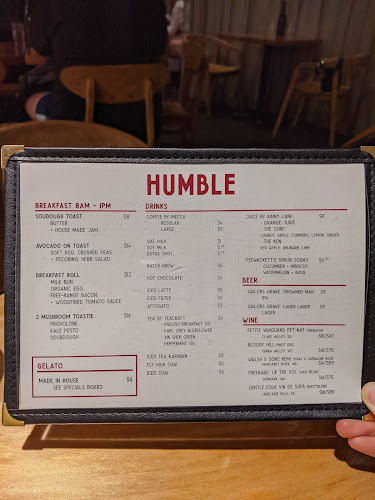 HUMBLE
BREAKFAST 8AM - 1PM
SOUDOUGH TOAST $8
BUTTER
+ HOUSE MADE JAM
AVOCADO ON TOAST $14
SOFT EGG, CRUSHED PEAS,
+ PECORINO, HERB SALAD
BREAKFAST ROLL $12
MILK BUN
ORGANIC EGG,
FREE-RANGE BACON,
+ WOODFIRED TOMATO SAUCE
3 MUSHROOM TOASTIE $16
PROVOLONE
KALE PESTO
SOURDOUGH
GELATO
MADE IN HOUSE $6
SEE SPECIALS BOARD
DRINKS
COFFEE BY MECCA
REGULAR $4
LARGE $5
OAT MILK $1
SOY MILK
EXTRA SHOT
BATCH BREW
HOT CHOCOLATE
ICED LATTE
ICED FILTER
AFFOGATO $7
TEA BY TEACRAFT
ENGLISH BREAKFAST OG
EARL GREY BLUEFLOWER
XIN YANG GREEN
PEPPERMINT OG
ICED TEA KARAVAN
FLY HIGH CHAI
ICED CHAI $6
JUICE BY RAINY LANE $8
ORANGE JUICE
THE CURE
CARROT, APPLE, TURMERIC, LEMON, GINGER
THE KEN
RED APPLE, RHUBARB, LIME
CUCUMBER + HIBISCUS
WATERMELON + BASIL
BEER
SAILORS GRAVE DROWNED MAN $9
IPA
SAILORS GRAVE LAGER LAGER $9
LAGER
WINE
PETITE VANGUARD PET-NAT
CLARE VALLEY, SA
BLOODY HILL PINOT GRIS
YARRA VALLEY, VIC
MARGARET RIVER, WA
DENMARK, WA
GENTLE FOLK VIN DE SOFA
ADELAIDE HILLS, SA